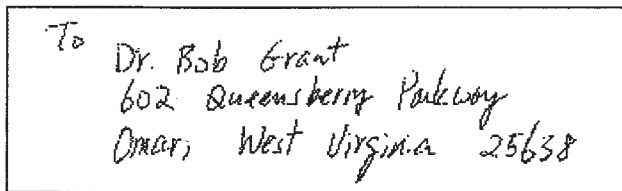 To
Dr. Bob Grant
602 Queensberry Parkway
Omar, West Virginia 25638